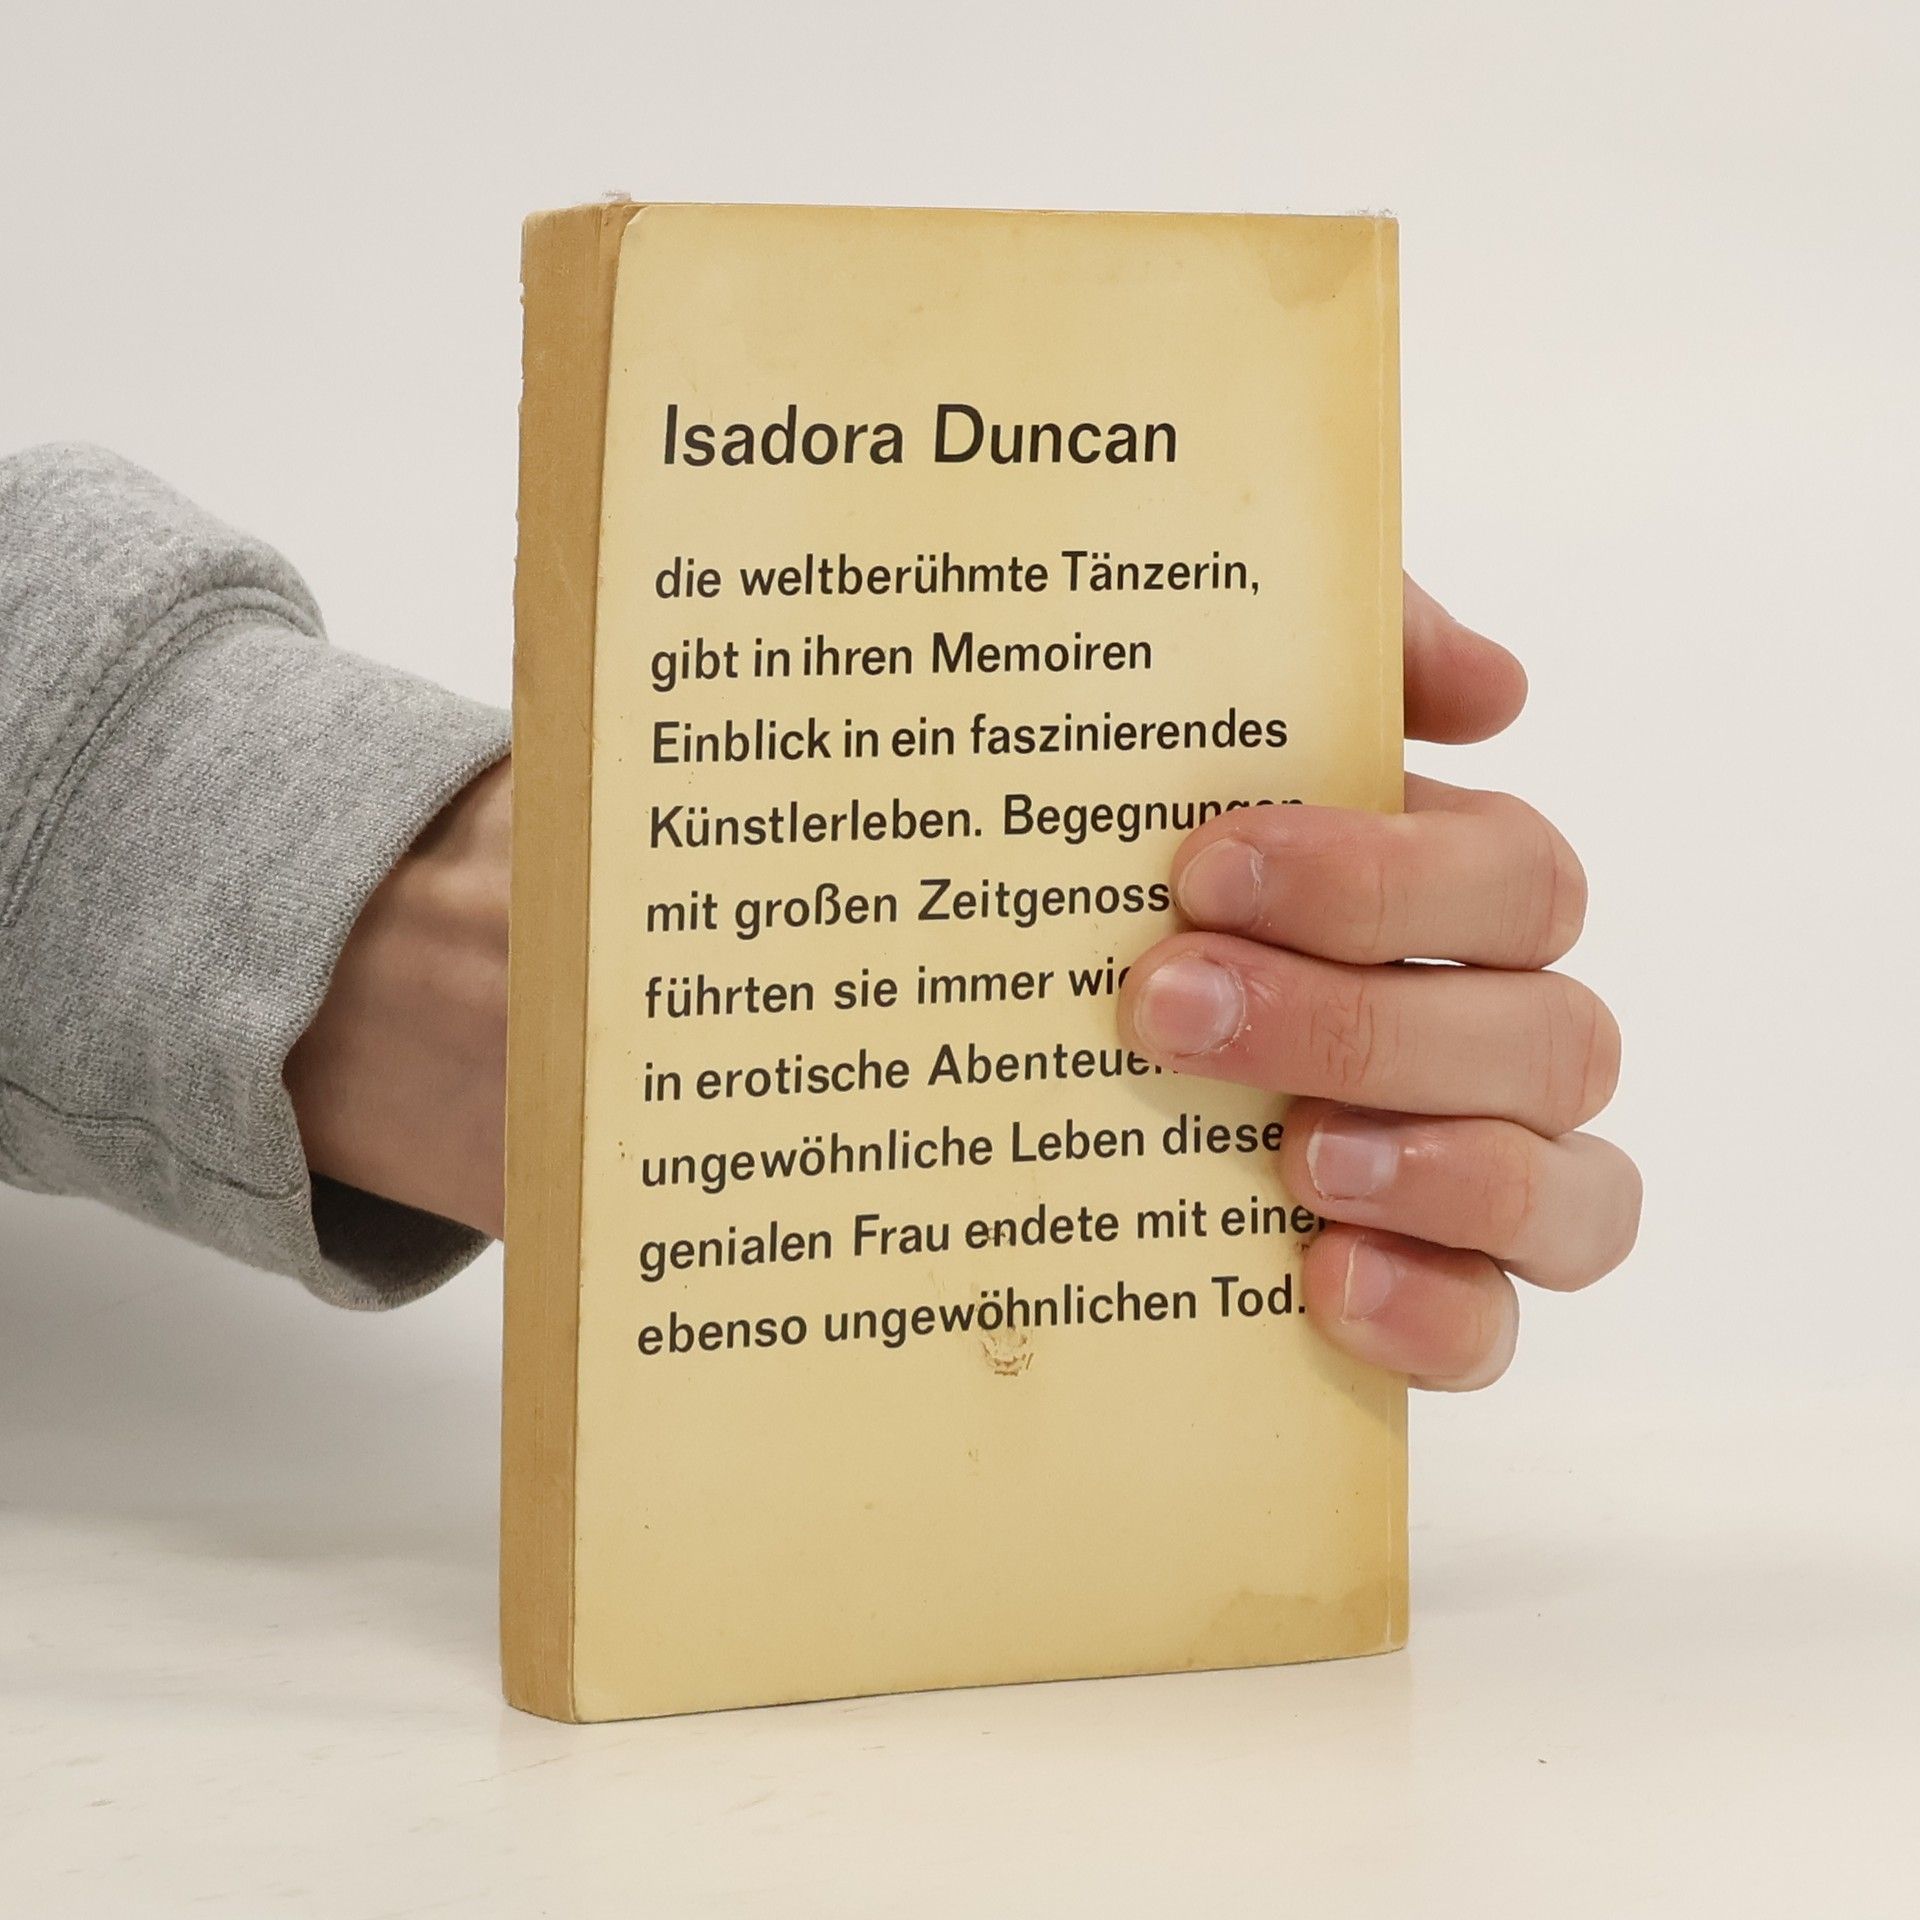 Isadora Duncan
die weltberühmte Tänzerin,
gibt in ihren Memoiren
Einblick in ein faszinierendes
Künstlerleben. Begegnungen
mit großen
führten sie immer
in erotische
ungewöhnliche Leben
genialen Frau endete mit
ebenso ungewöhnlichen Tod.